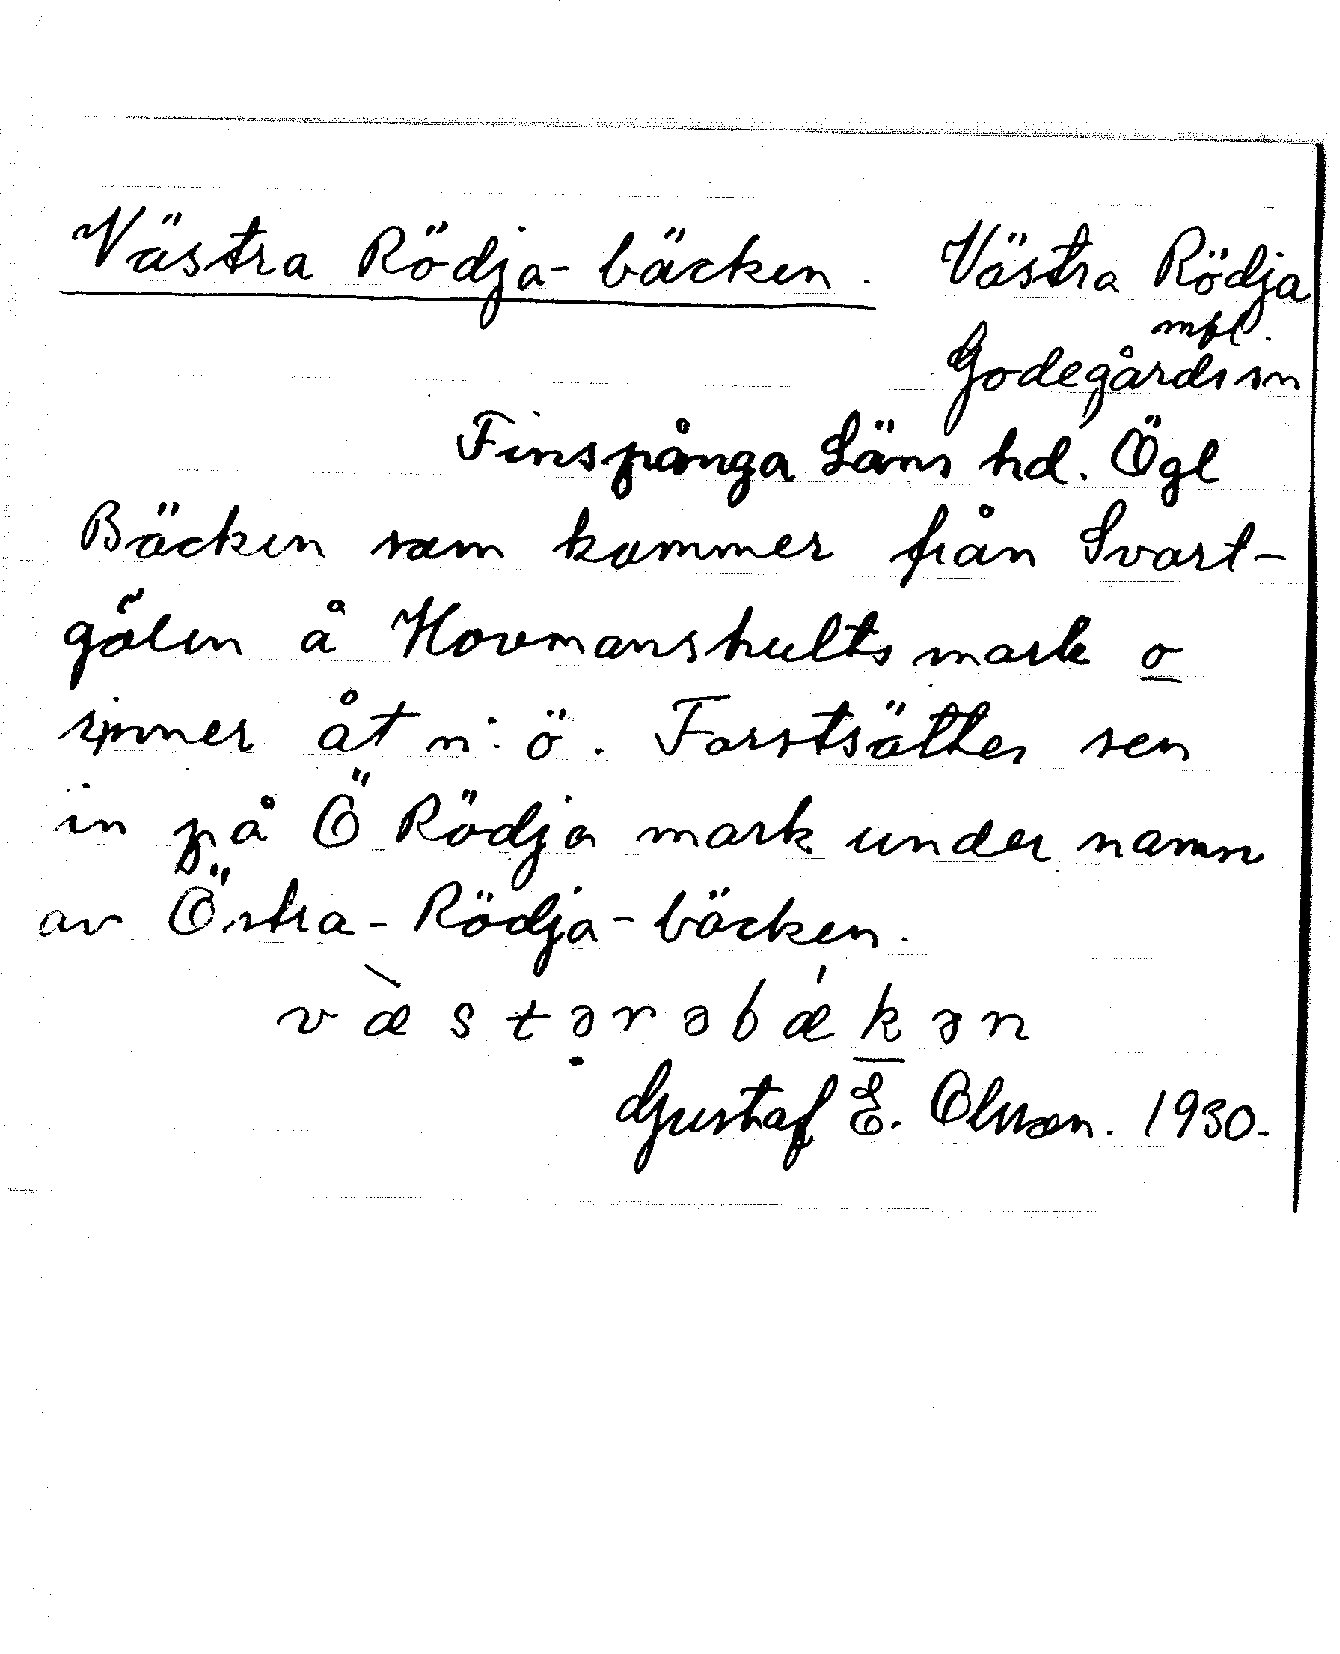 Västra Rödja-bäcken. Västra Rödja
mfl.
Godegårds sn
Finspånga Läns hd. Ögl
Bäcken som kommer från Svart-
gölen å Hovmanshults mark o
rinner åt n. ö. Forstsätter sen
in på Ö Rödja mark under namn
av Östra-Rödja-bäcken.
væ̀stərəbǽkən
Gustaf E. Olsson. 1930.